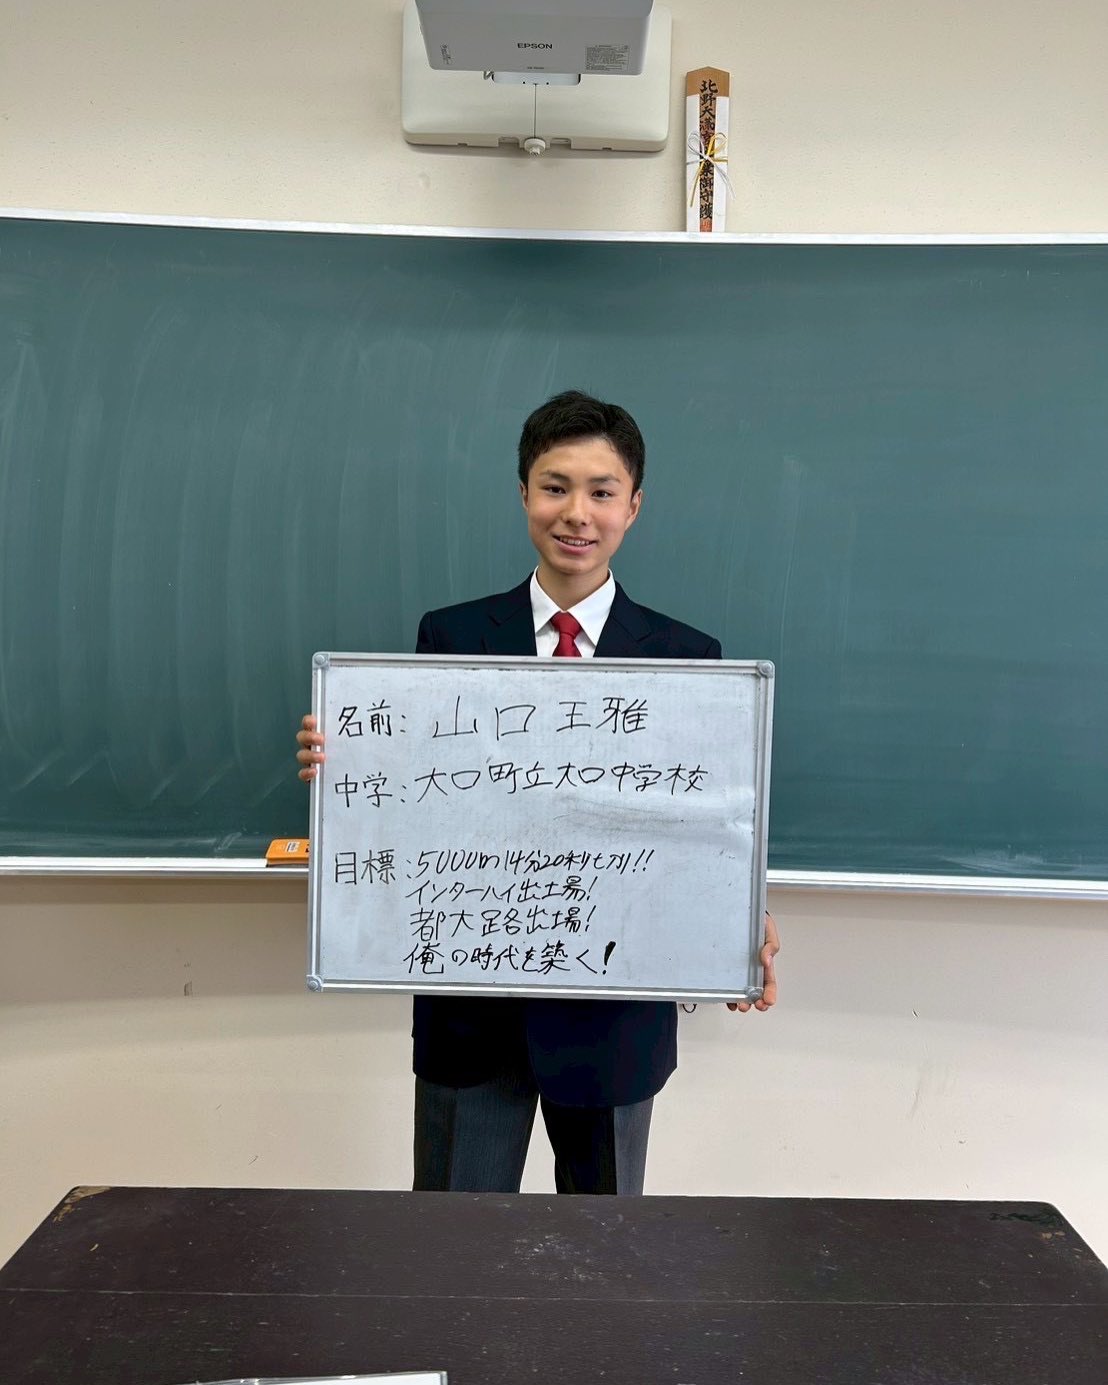 EPSON
北野天満宮
御守護
名前: 山口王雅
中学: 大口町立大口中学校
目標: 5000m14分20秒切り!!
インターハイ出場!
都大路出場!
俺の時代を築く!